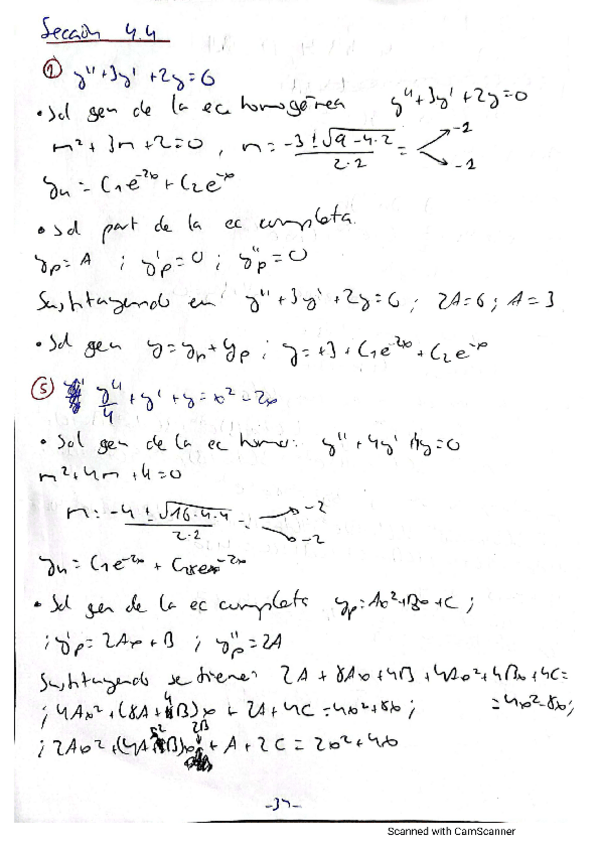 Sección 4.4
① y'' + 3y' + 2y = 6
• Sol gen de la ec homogénea y'' + 3y' + 2y = 0
m² + 3m + 2 = 0 , m = -3 ± √9 - 4·2 / 2·2 = -2 -1
yₕ = C₁e⁻²ˣ + C₂e⁻ˣ
• sol part de la ec completa.
yp = A ; y'p = 0 ; y''p = 0
Sustituyendo en y'' + 3y' + 2y = 6 ; 2A = 6 ; A = 3
• Sol gen y = yₕ + yp ; y = +3 + C₁e⁻²ˣ + C₂e⁻ˣ
⑤ y''/4 + y' + y = x² - 2x
• Sol gen de la ec homo: y'' + 4y' + 4y = 0
m² + 4m + 4 = 0
m = -4 ± √16-4·4 / 2·2 = -2 -2
yₕ = C₁e⁻²ˣ + C₂xe⁻²ˣ
• Sol gen de la ec completa yp = Ax² + Bx + C ;
; y'p = 2Ax + B ; y''p = 2A
Sustituyendo se tiene: 2A + 8Ax + 4B + 4Ax² + 4Bx + 4C =
= 4x² - 8x ;
; 4Ax² + (8A + 4B)x + 2A + 4C = 4x² + 8x ;
; 2Ax² + (4A + 2B)x + 2B + A + 2C = 2x² + 4x
-34-
Scanned with CamScanner